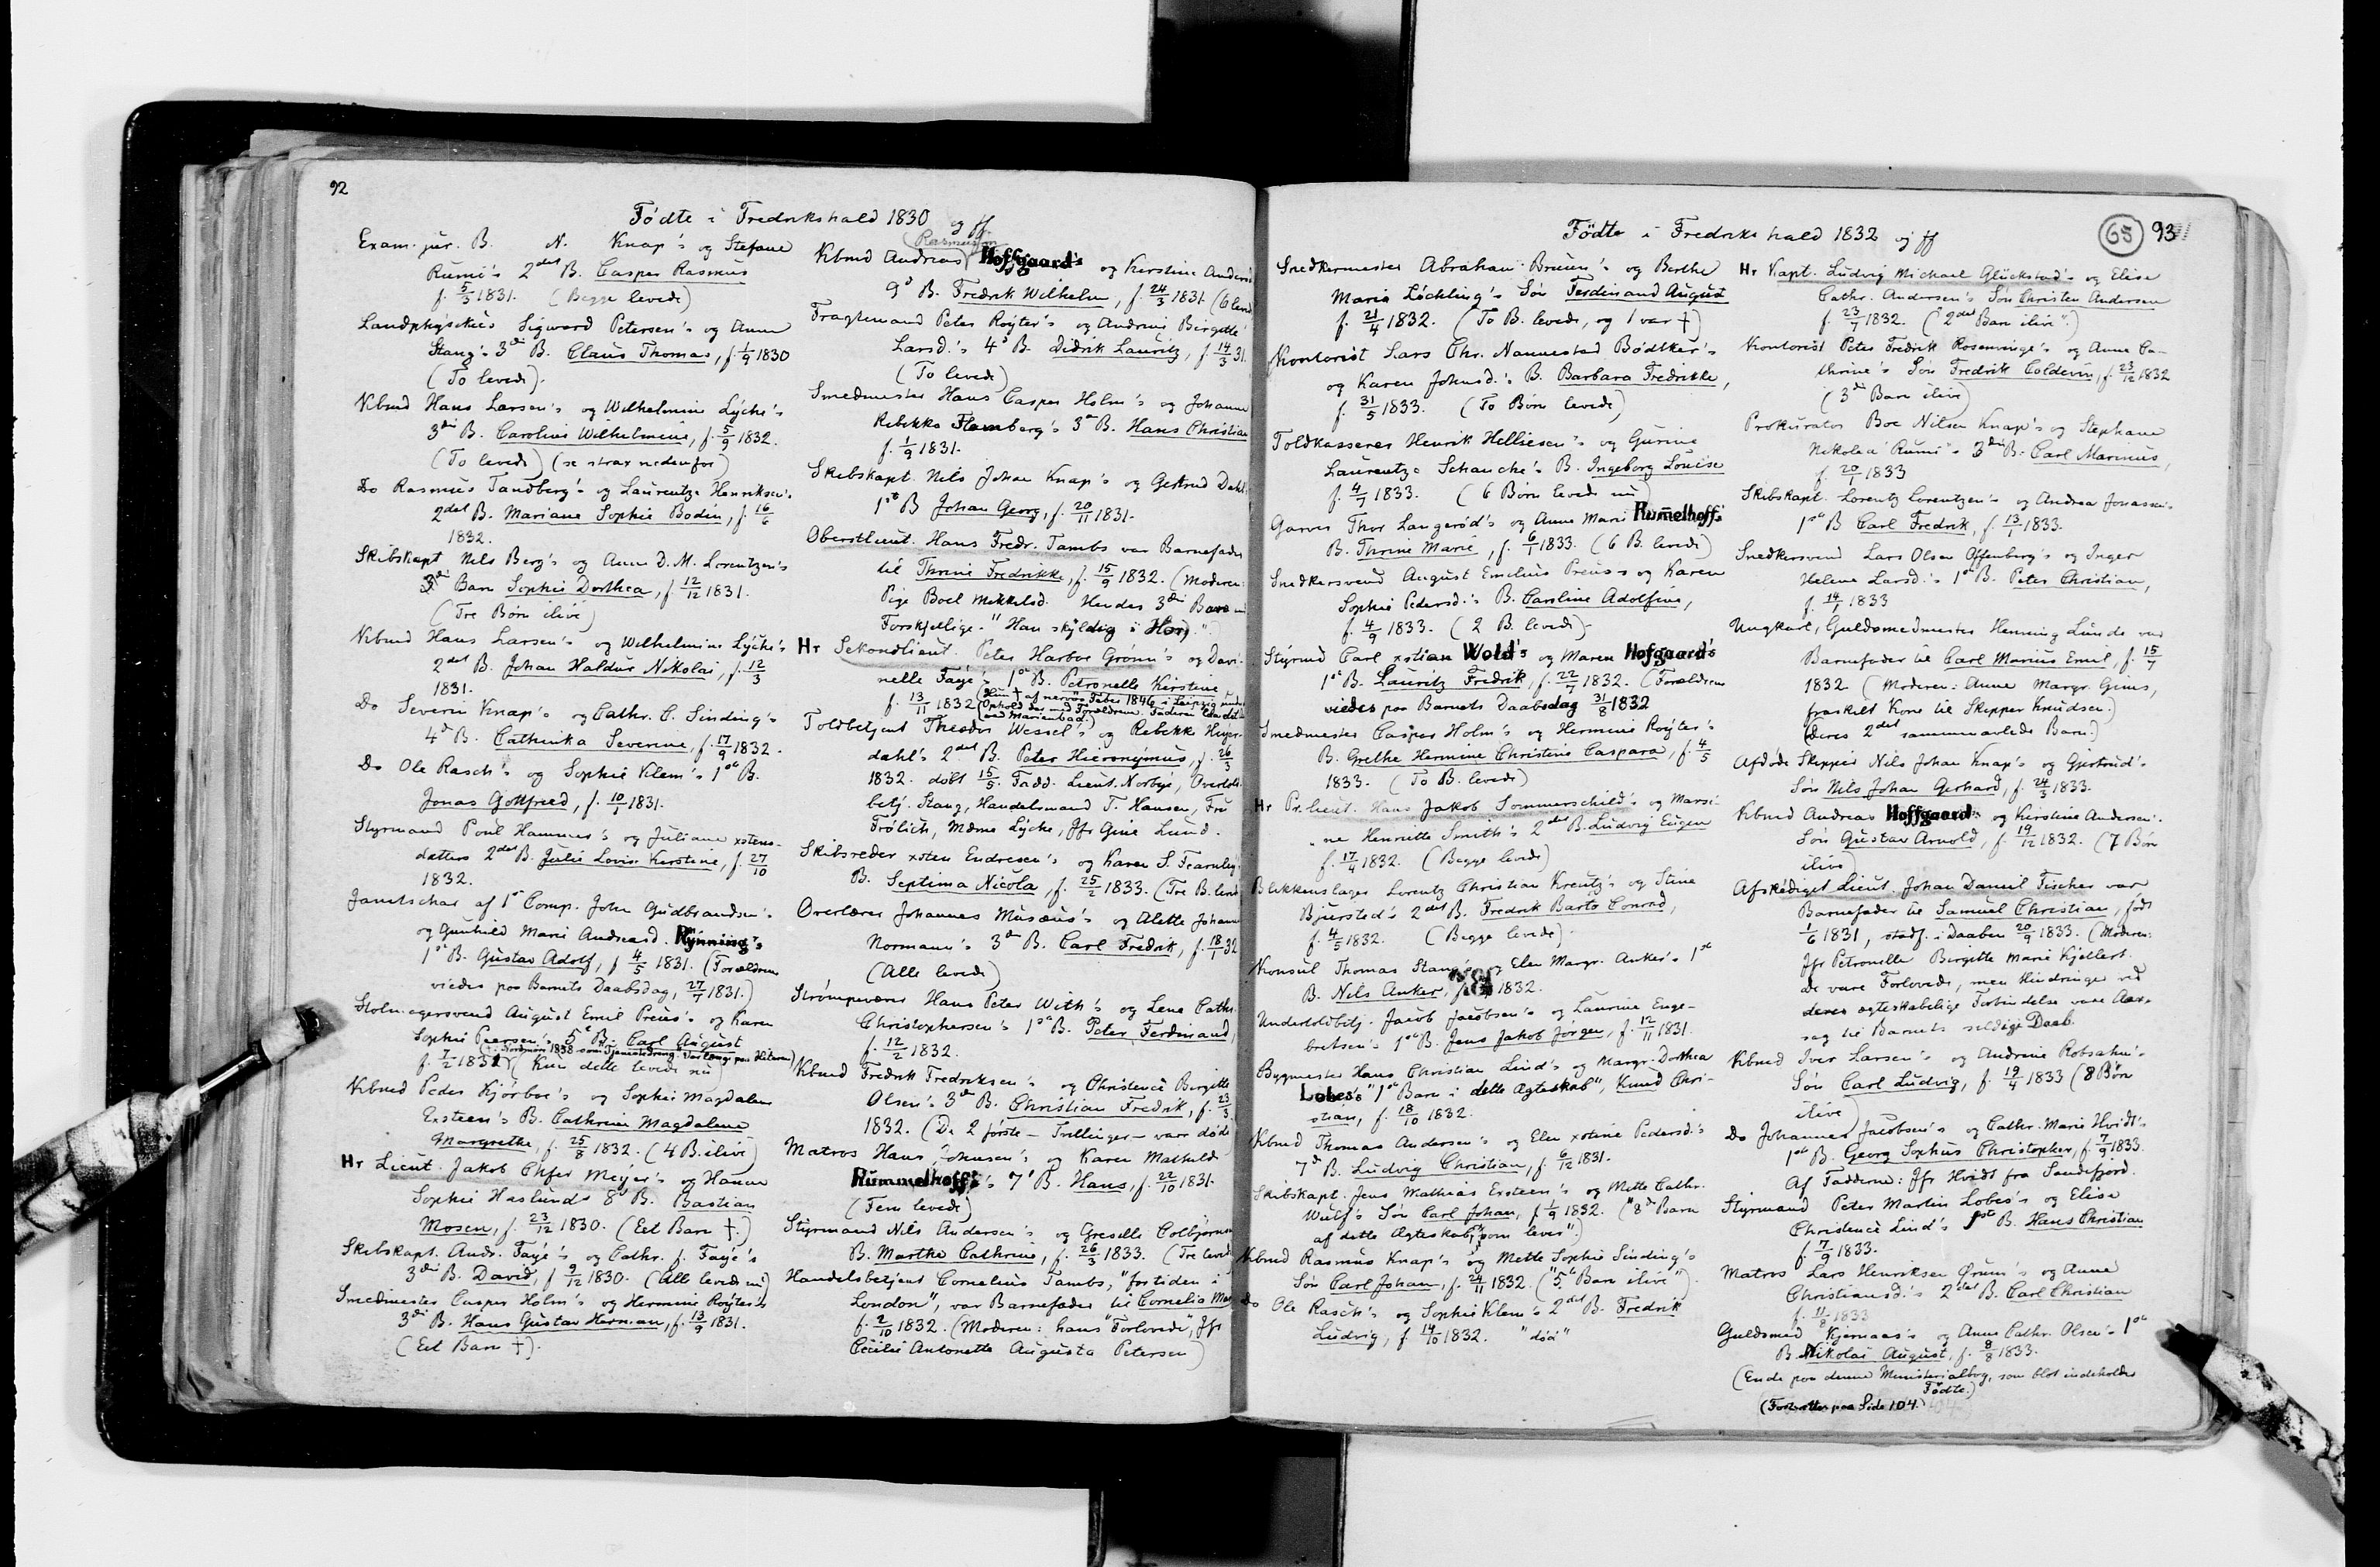 92
Födte i Fredrikshald 1830 og ff
Exam. jur. B. N. Knap's og Stefane
Rumi's 2det B. Casper Rasmus
f. 5/3 1831. (Begge levede)
Landphysikus Sigward Petersen's og Anne
Stang's 3die B. Claus Thomas, f. 1/9 1830
(To levede).
Kbmd Hans Larsen's og Wilhelmine Lyche's
3die B. Caroline Wilhelmine, f. 5/9 1832.
(To levede) (se strax nedenfor)
Do Rasmus Tandberg's og Laurentze Henriksen's
2det B. Mariane Sophie Bodin, f. 16/6
1832.
Skibskapt Nils Berg's og Anne D. M. Lorentzen's
3die Barn Sophie Dorthea, f. 12/12 1831.
(Tre Börn ilive)
Kbmd Hans Larsen's og Wilhelmine Lyche's
2det B. Johan Haldur Nikolai, f. 12/3
1831.
Do Severin Knap's og Cathr. C. Sinding's
4de B. Cathinka Severine, f. 17/9 1832.
Do Ole Rasch's og Sophie Klem's 1ste B.
Jonas Gottfried, f. 10/1 1831.
Styrmand Poul Hammer's og Juliane xstens-
datters 2det B. Julie Lovise Kerstine, f. 27/10
1832.
Janitschar af 1ste Comp. John Gudbrandsen's
og Gunhild Marie Andreasd. Rynning's
1ste B. Gustav Adolf, f 4/5 1831. (Forældrene
viedes paa Barnets Daabsdag, 27/7 1831.)
Stolmagersvend August Emil Preus's og Karen
Sophie Peersen's 5te B. Carl August
f. 7/2 1831 (Kun dette levede nu)
Kbmd Peder Kjörboe's og Sophie Magdalene
Ersteen's B. Cathrine Magdalene
Margrethe, f. 25/8 1832. (4 B. ilive)
Hr Lieut. Jakob Chfer Meyer's og Hanne
Sophie Haslund's 8de B. Bastian
Mosen, f. 23/12 1830. (Eet Barn †.)
Skibskapt. Andr. Faye's og Cathr. f. Faye's
3die B. David, f 9/12 1830. (Alle levede nu)
Smedmester Casper Holm's og Hermine Royter's
3die B. Hans Gustav Herman, f. 13/9 1831.
(Eet Barn †).
(Rasmussen
Kbmd Andreas Hoffgaard's og Kirstine Anders's
9de B. Fredrik Wilhelm, f. 24/3 1831 (6 leved
Fragtemand Peter Royter's og Andrine Birgitte
Larsd.'s 4de B. Didrik Lauritz, f 14/3 31.
(To levede)
Smedmester Hans Casper Holm's og Johanne
Rebekka Flemberg's 3die B. Hans Christian
f. 1/9 1831.
Skibskapt. Nels Johan Knap's og Gertrud Dahl's
1ste B Johan Georg, f. 20/11 1831.
Oberstlieut. Hans Fredr. Tambs var Barnefader
til Thrine Fredrikke, f. 15/9 1832. (Moderen:
Pige Boel Mikkelsd. Hendes 3die Barn
Forskjellige. "Han skyldig i Hor)."
Hr Sekondlieut. Peter Harboe Grönn's og Davi-
nelle Faye's 1ste B. Petronelle Kirstine
f. 13/11 1832 (Hun † af nervøs Feber 1846 i Leipzig under
Ophold der med Forældrene.
ved Marienbad.)
Toldbetjent Theodor Wessel's og Rebekke Heyer-
dahl's 2det B. Peter Hieronymus, f. 26/3
1832. döbt 15/5. Fadd. Lieut. Norbye, Overtold-
betj. Stang, Handelsmand T. Hansen, Fru
Frölich, Mdme Lyche, Jfr Gine Lund.
Skibsreder xsten Endresen's og Karen S. Fearnley
B. Septima Nicola, f. 25/2 1833. (Tre B. leved
Overlærer Johannes Musæus's og Alette Johanne
Normann's 3die B. Carl Fredrik, f. 18/1 32
(Alle levede)
Strömpevæver Hans Peter With's og Lene Cathr.
Christophersen's 1ste B. Peter Ferdinand,
f. 12/2 1832.
Kbmd Fredrik Fredriksen's og Christence Birgitte
Olsen's 3die B. Christian Fredrik, f. 23/3
1832. (De 2 förste – Tvillinger – vare döde
Matros Hans Johnsen's og Karen Mathilde
Rummelhoff's 7de B. Hans, f. 22/10 1831.
(Fem levede)
Styrmand Nils Andersen's og Greselle Colbjörnsen
B. Marthe Cathrine, f. 26/3 1833. (Tre leved
Handelsbetjent Cornelius Tambs, "for tiden i
London", var Barnefader til Cornelia Mar
f. 2/10 1832. (Moderen: hans "Forlovede", Jfr
Cecilie Antonette Augusta Petersen)
Födte i Fredrikshald 1832 og ff
65 93
Snedkermester Abraham Bruun's og Berthe
Marie Löchling's Sön Ferdinand August
f. 21/4 1832. (To B. levede, og 1 var †)
Kontorist Lars Chr. Nannestad Bödtker's
og Karen Johnsd.'s B. Barbara Fredrikke,
f. 31/5 1833. (To Börn levede)
Toldkasserer Henrik Helliesen's og Gurine
Laurentze Schanche's B. Ingeborg Louise
f. 4/1 1833. (6 Börn levede nu)
Garver Thor Langeröd's og Anne Marie Rumelhoff's
B. Thrine Marie, f. 6/1 1833. (6 B. levede)
Snedkersvend August Emilius Preus's og Karen
Sophie Pedersd.'s B. Caroline Adolfine,
f. 4/9 1833. (2 B. levede)
Styrmd Carl xstian Wold's og Maren Hofgaard's
1ste B. Lauritz Fredrik, f. 22/7 1832. (Forældrene
viedes paa Barnets Daabsdag 31/8 1832
Smedmester Casper Holm's og Hermine Royter's
B. Grethe Hermine Christine Caspara, f. 4/5
1833. (To B. levede)
Hr Pr. lieut. Hans Jakob Sommerschild's og Marsi-
ne Henriette Smith's 2det B. Ludvig Eugen
f. 17/4 1832. (Begge levede)
Blikkenslager Lorentz Christian Kreutz's og Stine
Bjursted's 2det B. Fredrik Barto Conrad,
f. 4/5 1832. (Begge levede)
Konsul Thomas Stang's og Elen Margr. Anker's 1ste
B. Nils Anker, f. 1832.
Undertoldbetj. Jacob Jacobsen's og Laurine Enge-
bretsen's 1ste B. Jens Jakob Jörgen, f. 12/11 1831.
Bygmester Hans Christian Lind's og Margr. Dorthea
Lobes's "1ste Barn i dette Ægteskab", Knud Chri-
stian, f. 18/10 1832.
Kbmd Thomas Andersen's og Elen xstine Pedersd.'s
7de B. Ludvig Christian, f. 6/12 1831.
Skibskapt. Jens Mathias Ersteen's og Mette Cathr.
Wulf's Sön Carl Johan, f 1/9 1832. ("8de Barn
af dette Ægteskab, som lever".)
Kbmd Rasmus Knap's og Mette Sophie Sinding's
Sön Carl Johan, f. 24/11 1832. ("5te Barn ilive").
Do Ole Rasch's og Sophie Klem's 2det B. Fredrik
Ludvig, f 14/10 1832. "död"
Hr Kapt. Ludvig Michael Glückstad's og Elise
Cathr. Andersen's Sön Christen Andersen
f. 23/7 1832. ("2det Barn ilive".)
Kontorist Peter Fredrik Rosenvinge's og Anne Ca-
thrine's Sön Fredrik Coldevin, f. 23/12 1832
(3die Barn ilive)
Prokurator Boe Nilsen Knap's og Stephane
Nikolea Rumi's 3die B. Carl Marinius,
f. 20/1 1833
Skibskapt. Lorentz Lorentzen's og Andrea Jonassen's
1ste B Carl Fredrik, f. 13/1 1833.
Snedkersvend Lars Olsen Offenberg's og Inger
Helene Larsd.'s 1ste B. Peter Christian,
f. 14/1 1833
Ungkarl, Guldsmedmester Henning Lunde var
Barnefader til Carl Marius Emil, f. 15/7
1832 (Moderen: Anne Margr. Gius,
fraskilt Kone til Skipper Knudsen.)
(Deres 2det sammenavlede Barn.)
Afdöde Skipper Nils Johan Knap's og Gjertrud's
Sön Nils Johan Gerhard, f. 24/3 1833.
Kbmd Andreas Hoffgaard's og Kirstine Andersen's
Sön Gustav Arnold, f. 19/12 1832. (7 Börn
ilive)
Afskediget Lieut. Johan Daniel Fischer var
Barnefader til Samuel Christian, födt
1/6 1831, stadf. i Daaben 20/9 1833. (Moderen:
Jfr Petronelle Birgitte Marie Kjellert.
De vare Forlovede, men Hindringer ved
deres ægteskabelige Forbindelse vare Aar-
sag til Barnets sildige Daab.
Kbmd Iver Larsen's og Andrine Robsahm's
Sön Carl Ludvig, f. 19/4 1833 (8 Börn
ilive)
Do Johannes Jacobsen's og Cathr. Marie Hvidt's
1ste B. Georg Sophus Christopher, f 7/9 1833.
Af Fadderne: Jfr Hvidt fra Sandefjord.
Styrmand Peter Martin Lobes's og Elise
Christence Lind's 1ste B. Hans Christian
f 7/9 1833.
Matros Lars Henriksen Örum's og Anne
Christiansd.'s 2det B. Carl Christian
f. 11/8 1833
Guldsmed Kjernaas's og Anne Cathr. Olsen's 1ste
B. Nikolai August, f. 8/8 1833.
(Ende paa denne Ministerialbog, som blot indeholder
Födte.)
(Fortsættes paa Side 104.)